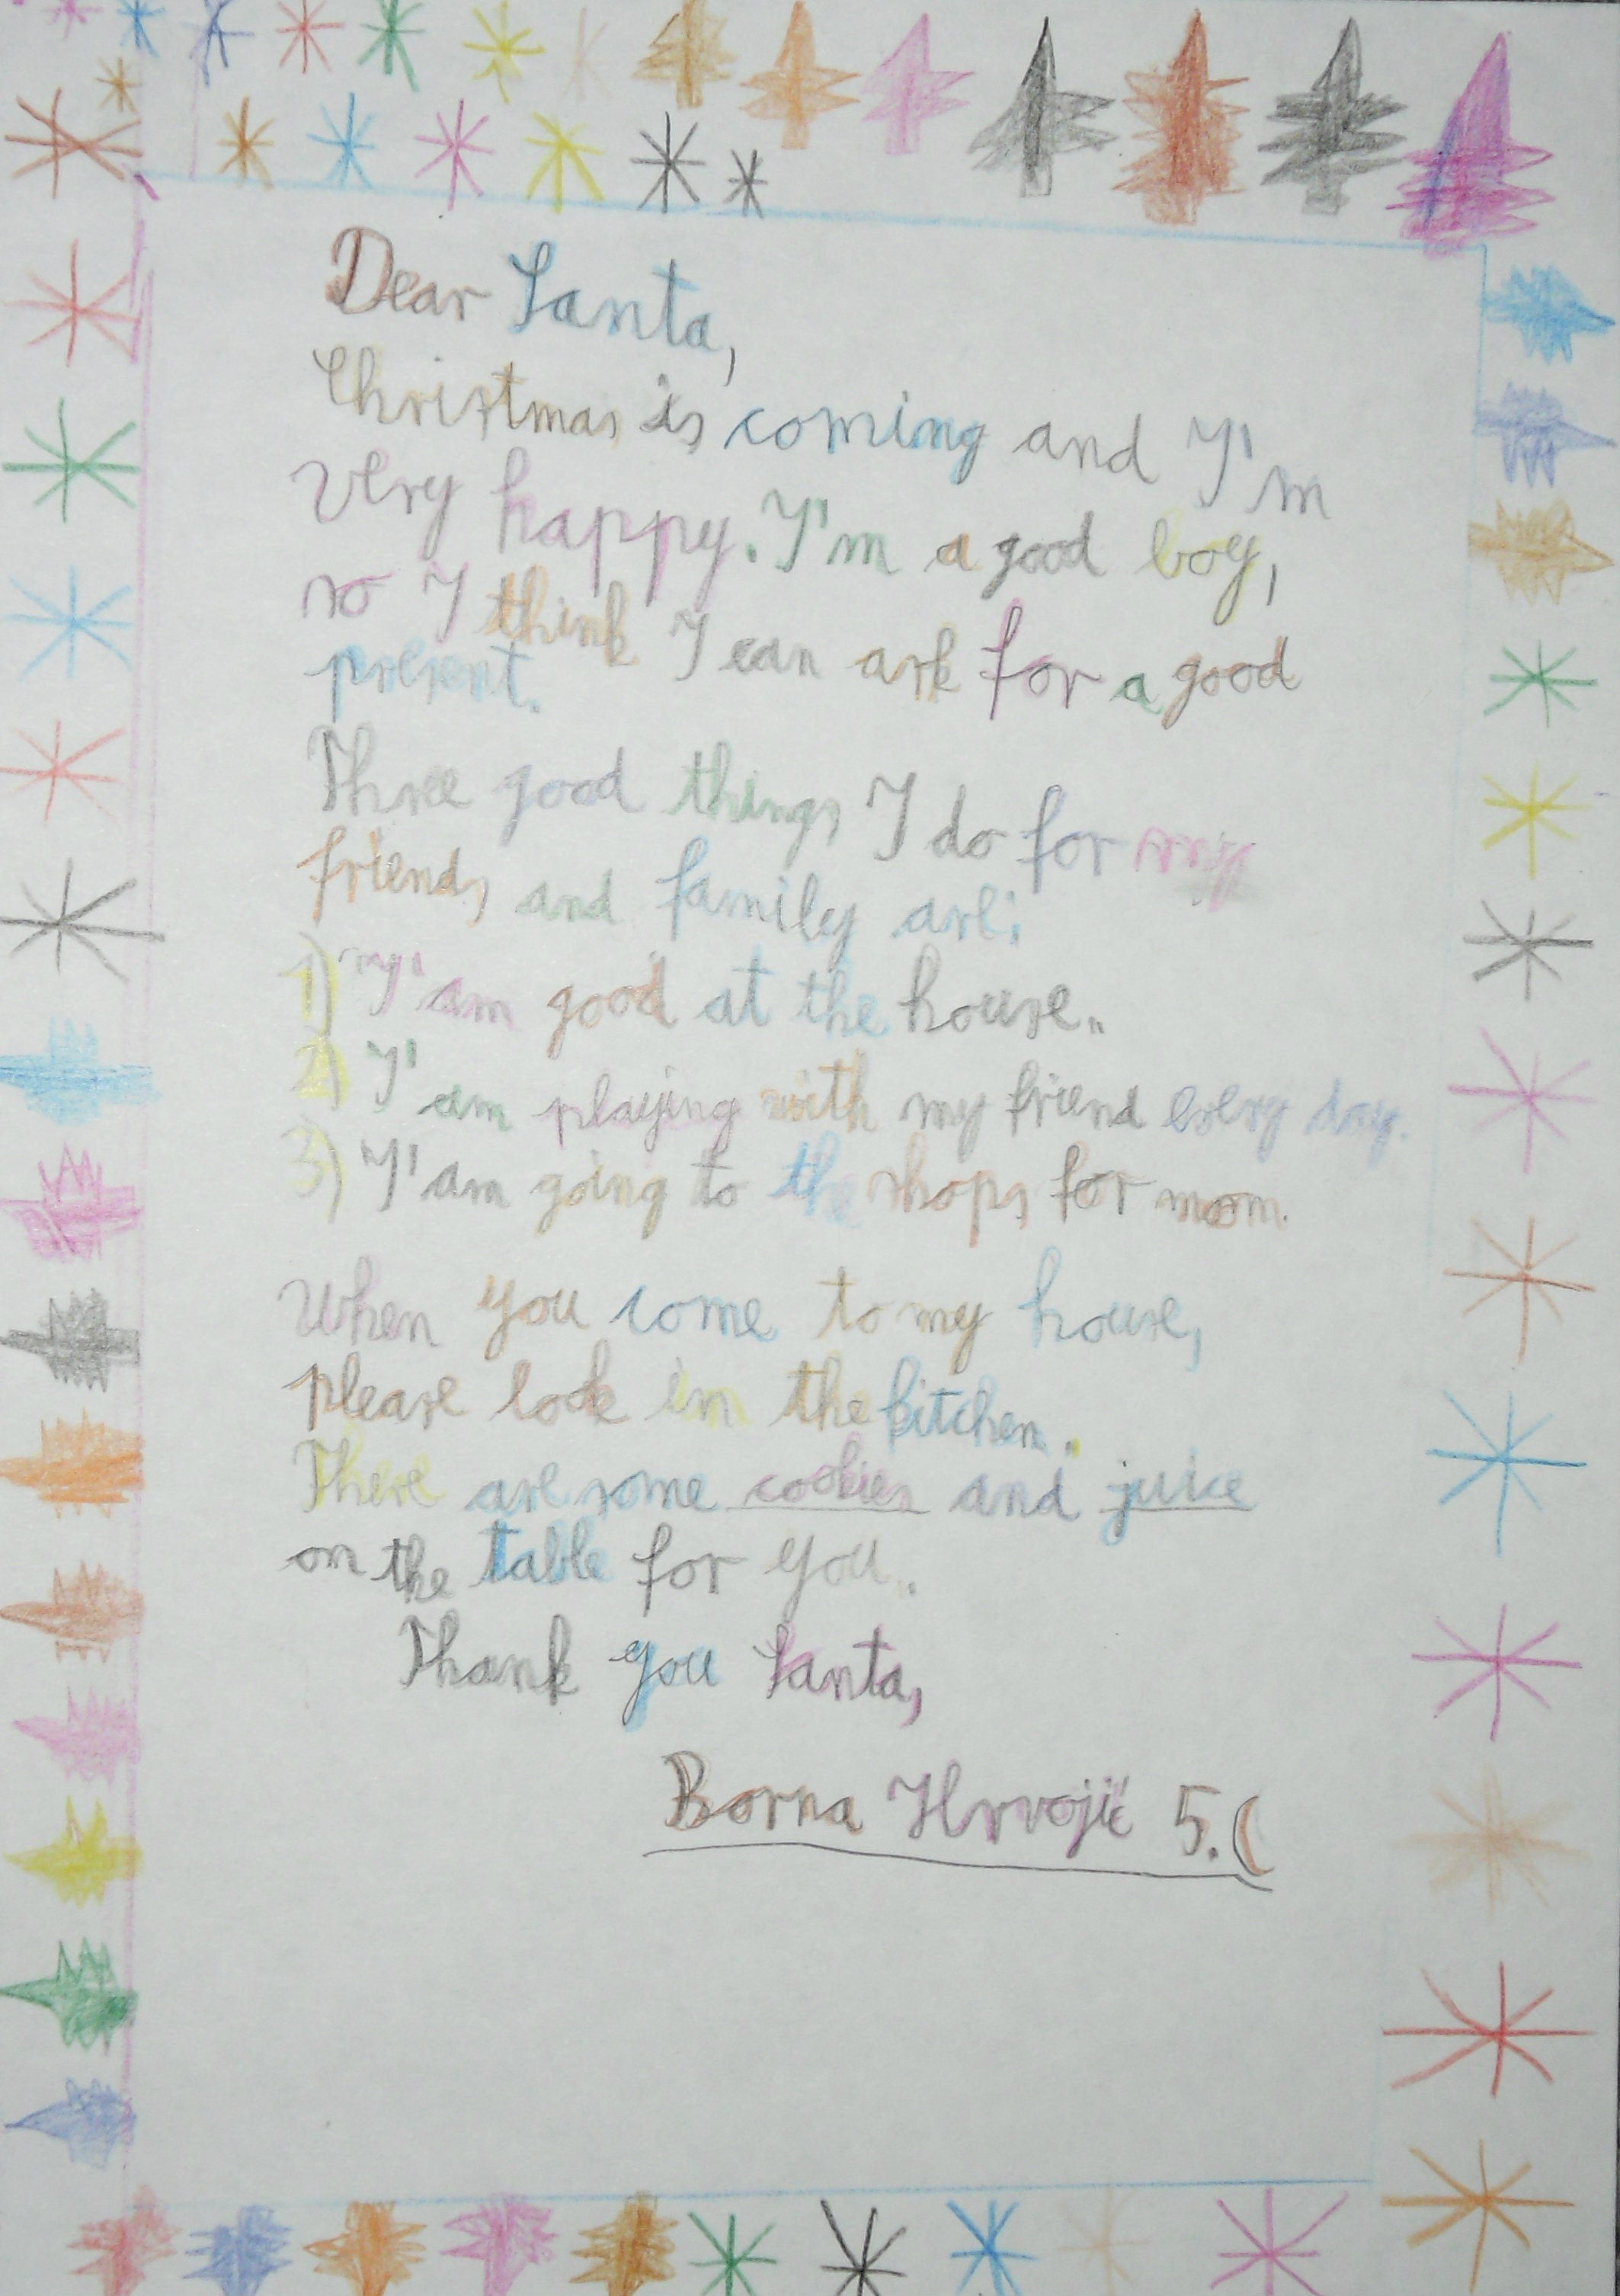 Dear Santa,
Christmas is coming and I'm
very happy. I'm a good boy,
so I think I can ask for a good
present.
Three good things I do for my
friends and family are:
1) I'am good at the house.
2) I'am playing with my friend every day.
3) I'am going to the shops for mom.
When you come to my house,
please look in the kitchen.
There are some cookies and juice
on the table for you.
Thank you Santa,
Borna Hrvojić 5.c